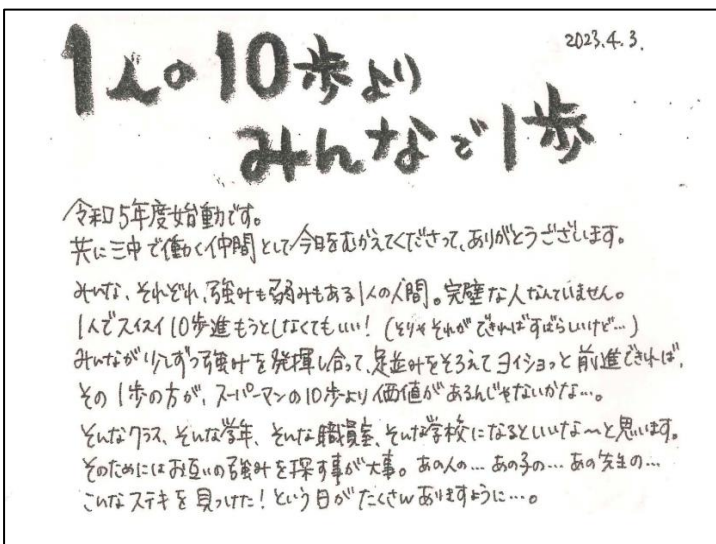 2023.4.3.
1人の10歩より
みんなで1歩
令和5年度始動です。
共に三中で働く仲間として今日をむかえてくださって、ありがとうございます。
みんな、それぞれ、強みも弱みもある1人の人間。完璧な人なんていません。
1人でスイスイ10歩進もうとしなくてもいい！（そりゃそれができればすばらしいけど…）
みんなが少しずつ強みを発揮し合って、足並みをそろえてヨイショっと前進できれば、
その1歩の方が、スーパーマンの10歩より価値があるんじゃないかな…。
そんなクラス、そんな学年、そんな職員室、そんな学校になるといいな〜と思います。
そのためにはお互いの強みを探す事が大事。あの人の…あの子の…あの先生の…
こんなステキを見つけた！という日がたくさんありますように…。